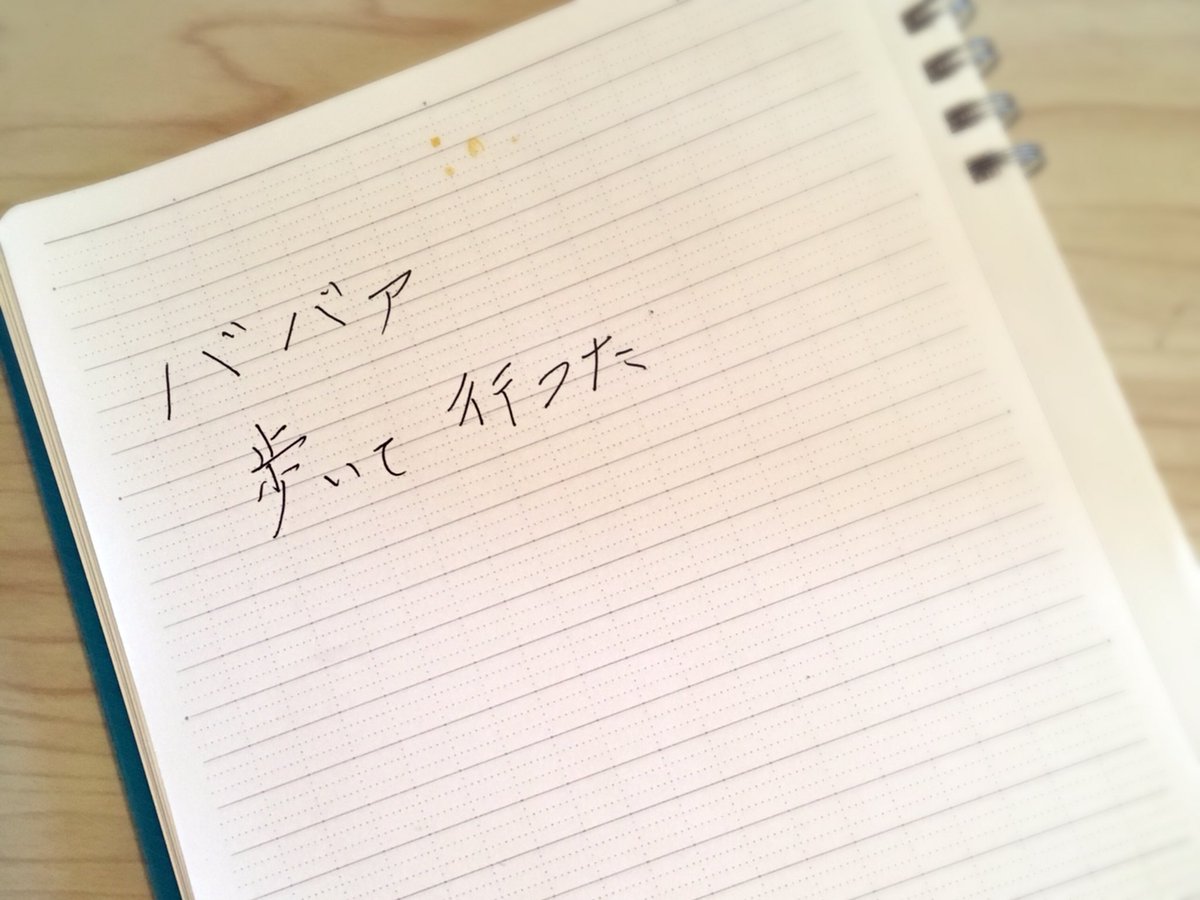 ババア
歩いて 行った